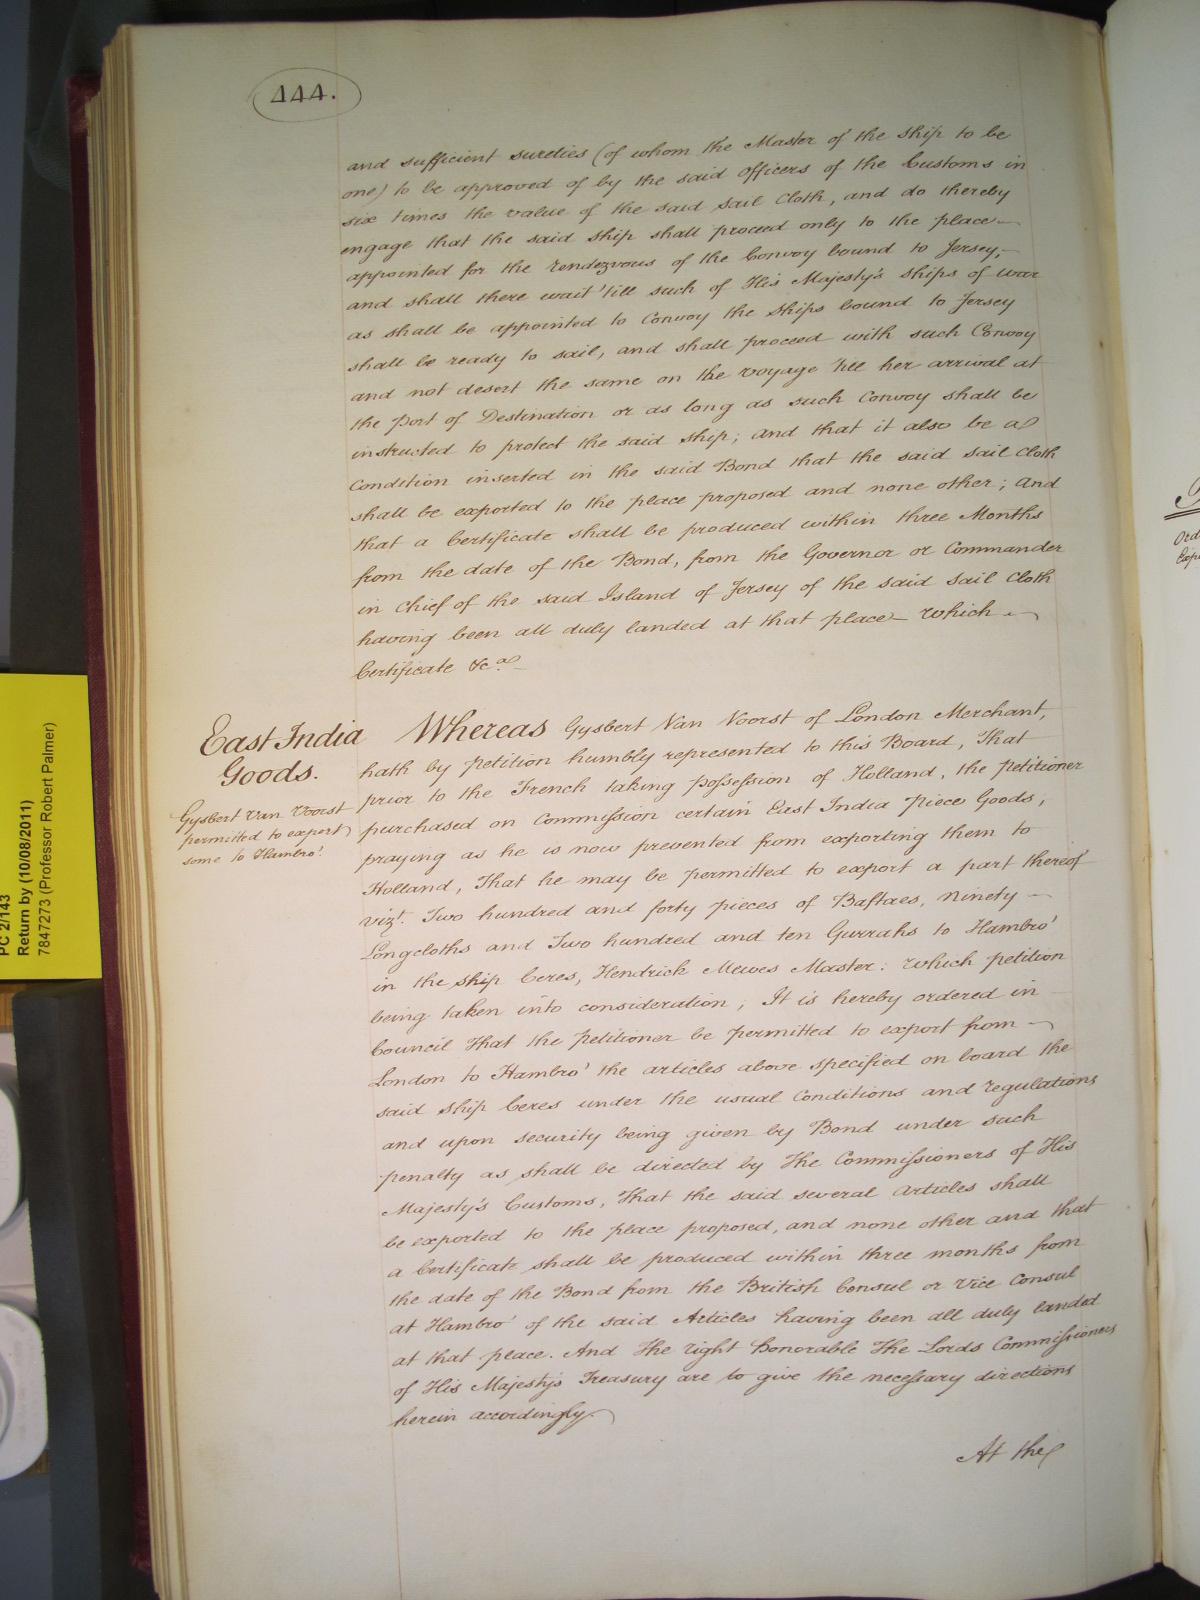 444.
and sufficient sureties (of whom the Master of the ship to be
one) to be approved of by the said officers of the Customs in
six times the value of the said sail Cloth, and do thereby
engage that the said ship shall proceed only to the place
appointed for the rendezvous of the Convoy bound to Jersey,
and shall there wait 'till such of His Majesty's ships of war
as shall be appointed to Convoy the ships bound to Jersey
shall be ready to sail, and shall proceed with such Convoy
and not desert the same on the voyage 'till her arrival at
the Port of Destination or as long as such Convoy shall be
instructed to protect the said ship; And that it also be a
Condition inserted in the said Bond that the said sail Cloth
shall be exported to the place proposed and none other; And
that a Certificate shall be produced within three Months
from the date of the Bond, from the Governor or Commander
in Chief of the said Island of Jersey of the said sail Cloth
having been all duly landed at that place which
Certificate &ca
East India
Goods.
Gysbert Van Voorst
permitted to export
some to Hambro'.
Whereas Gysbert Van Voorst of London Merchant,
hath by petition humbly represented to this Board, That
prior to the French taking possession of Holland, the petitioner
purchased on Commission certain East India piece Goods;
praying as he is now prevented from exporting them to
Holland, That he may be permitted to export a part thereof
vizt. Two hundred and forty pieces of Baftaes, Ninety
Longcloths and Two hundred and ten Gurrahs to Hambro'
in the ship Ceres, Hendrick Mewes Master: which petition
being taken into consideration; It is hereby ordered in
Council That the Petitioner be permitted to export from
London to Hambro' the articles above specified on board the
said ship Ceres under the usual Conditions and regulations
and upon security being given by Bond under such
penalty as shall be directed by The Commissioners of His
Majesty's Customs, That the said several Articles shall
be exported to the place proposed, and none other and that
a Certificate shall be produced within three months from
the date of the Bond from the British Consul or Vice Consul
at Hambro' of the said Articles having been all duly landed
at that place. And The right Honorable The Lords Commissioners
of His Majesty's Treasury are to give the necessary directions
herein accordingly.
At the
PC 2/143
Return by (10/08/2011)
7847273 (Professor Robert Palmer)